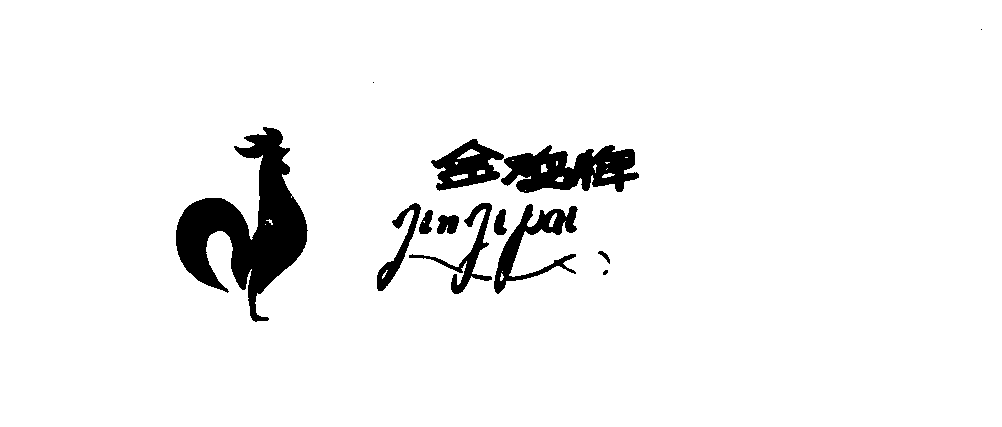 金鸡牌
JinJipai